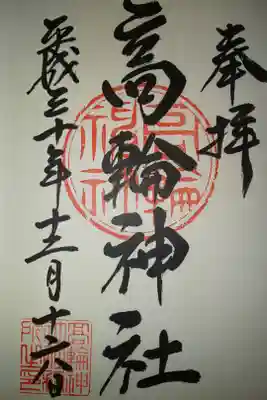 奉拝
高輪神社
平成三十年十二月十六日
高輪神社